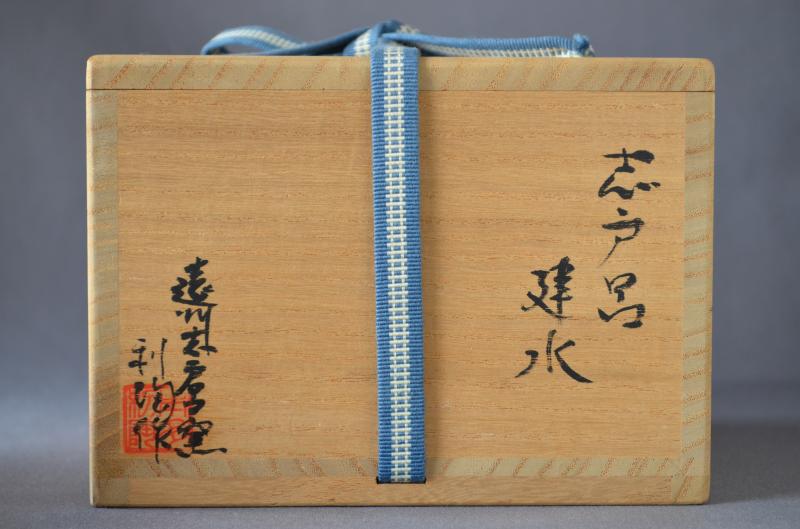 志戸呂
建水
遠州太唐窯
利陶作